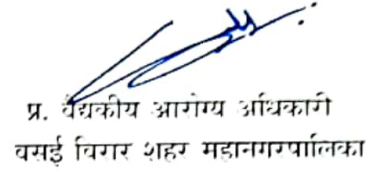 प्र. वैद्यकीय आरोग्य अधिकारी
वसई विरार शहर महानगरपालिका